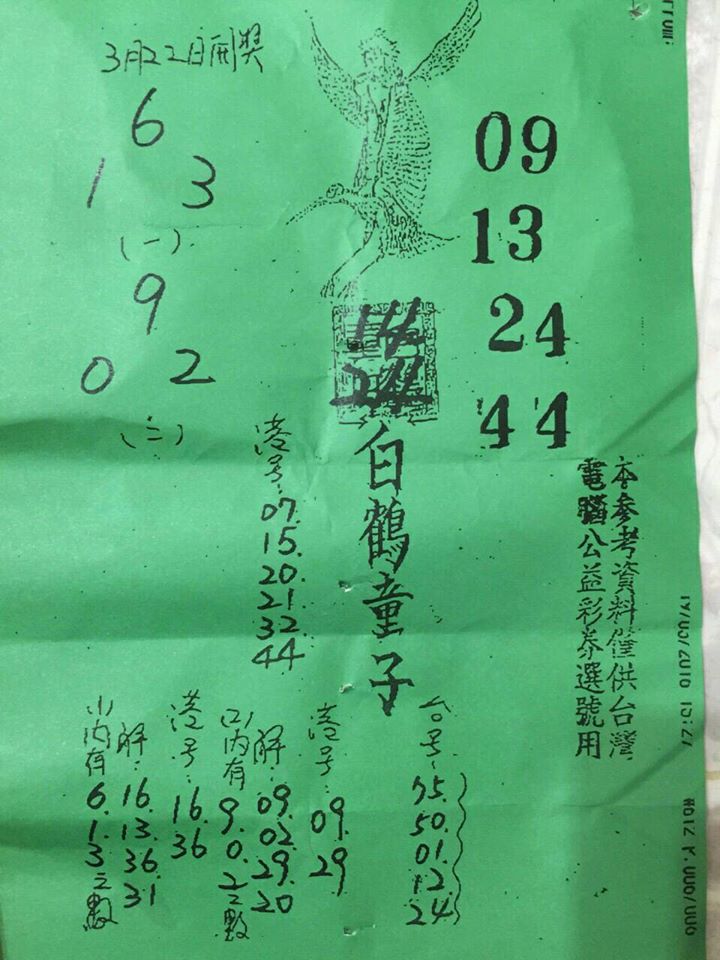 3月22日開獎
6
1 3
(一)
9
0 2
(二)
09
13
24
44
白鶴童子
本參考資料僅供台灣
電腦公益彩券選號用
港号
07.
15.
20.
21.
32.
44
台号:
75.
50.
01.
12.
24
港号:
09
29
解:
09.
02.
29.
20
(2)內有
9.
0.
2之數
港号:
16
36
解:
16.
13.
36.
31
(1)內有
6.
1.
3之數